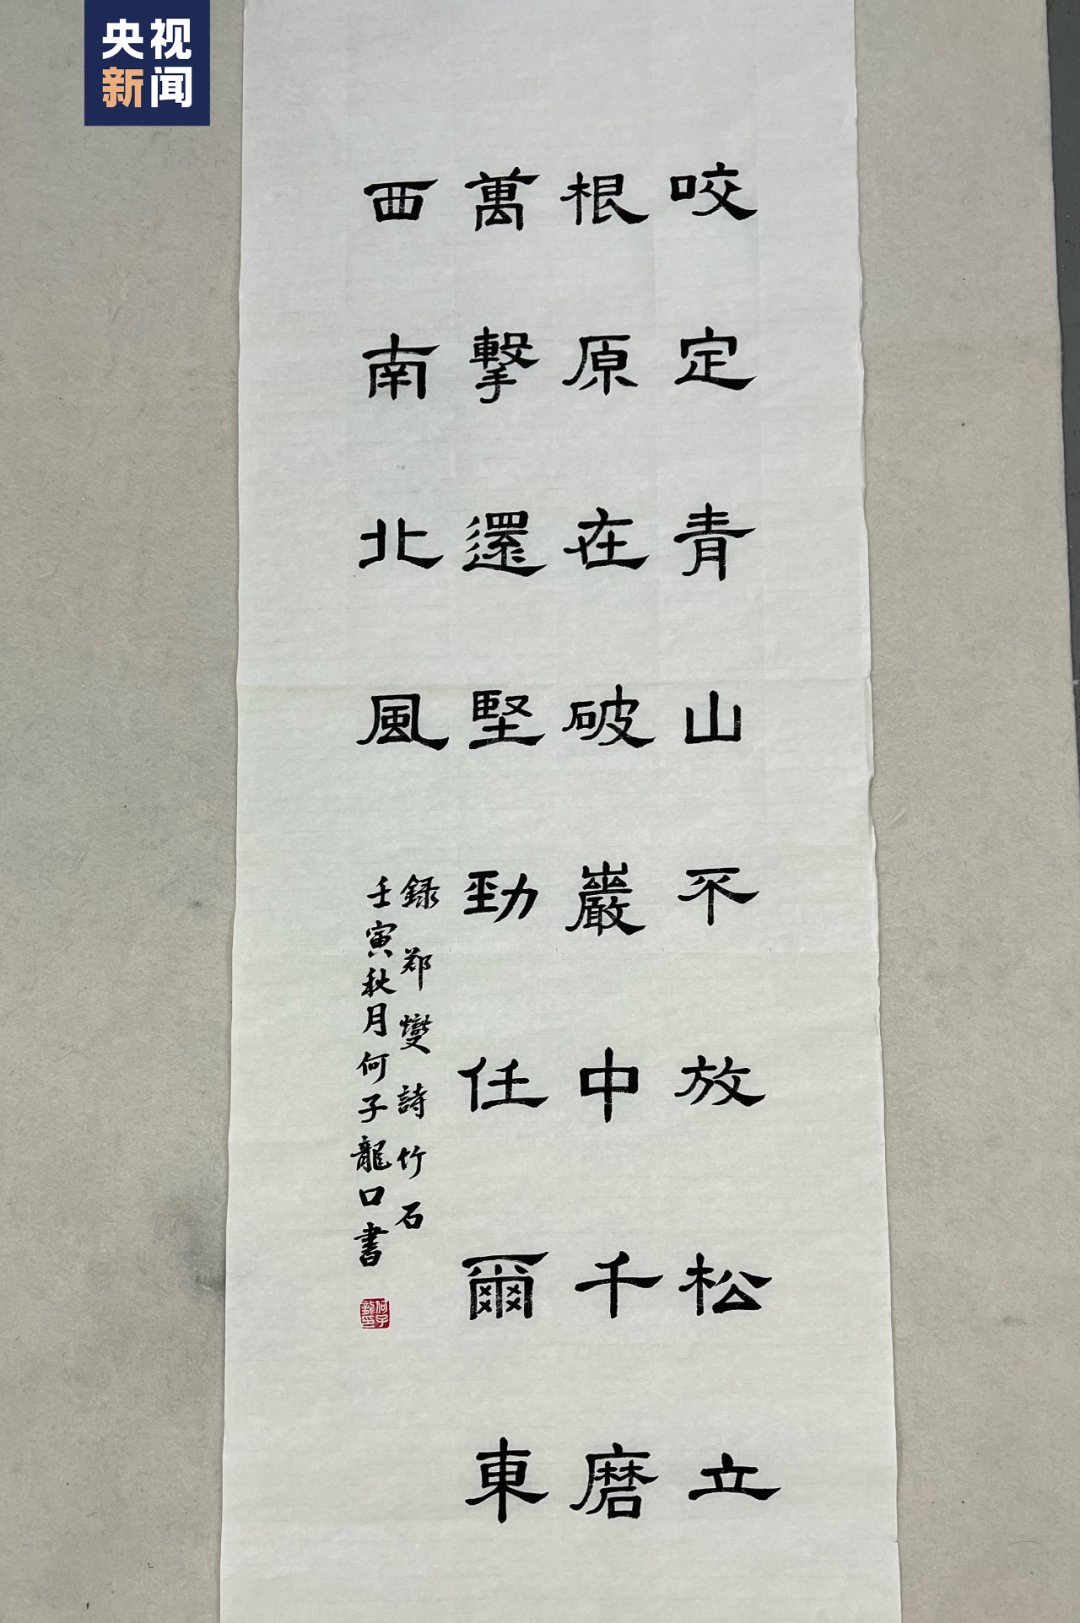 央视
新闻
咬定青山不放松立
根原在破巖中千磨
萬擊還堅勁任爾東
西南北風
録郑燮詩竹石
壬寅秋月何子龍口書
何子龍印